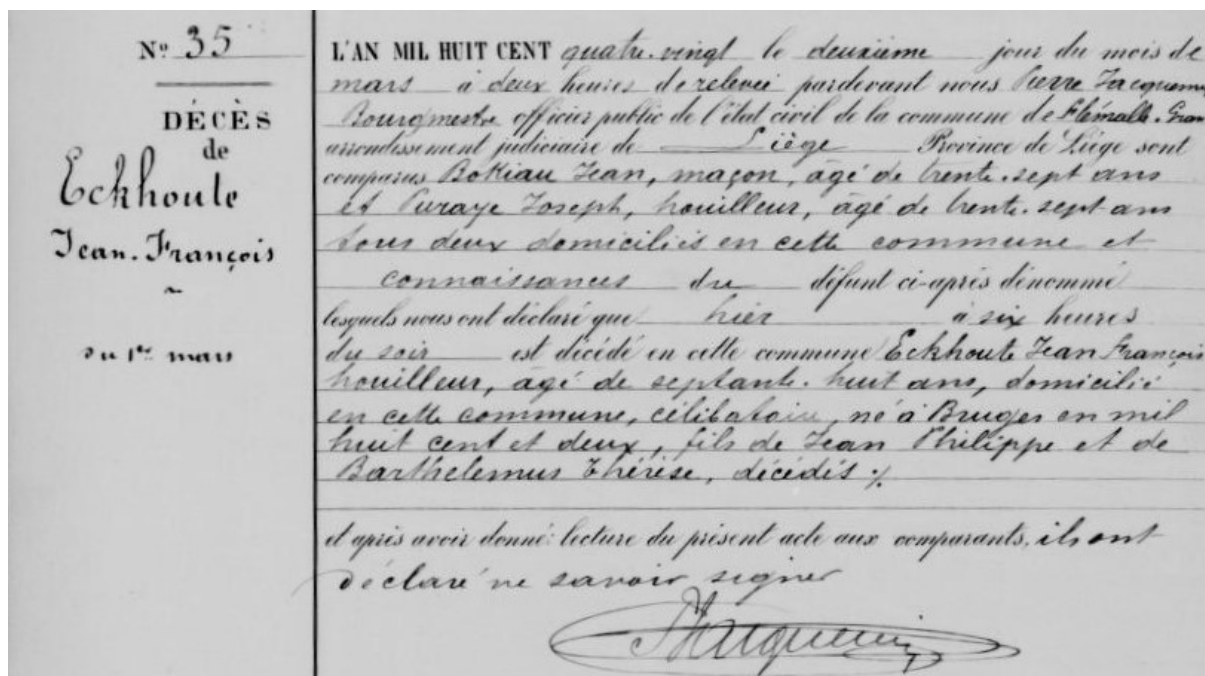 Nº 35
DÉCÈS
de
Eckhoute
Jean-François
du 1er mars
L'AN MIL HUIT CENT quatre-vingt le deuxième jour du mois de
mars à deux heures de relevée pardevant nous Pierre Jacquemin
Bourgmestre officier public de l'état civil de la commune de Flémalle-Gran
arrondissement judiciaire de Liège Province de Liège sont
comparus Bokiau Jean, maçon, âgé de trente-sept ans
et Puraye Joseph, houilleur, âgé de trente-sept ans
tous deux domiciliés en cette commune et
connaissances du défunt ci-après dénommé
lesquels nous ont déclaré que hier à six heures
du soir est décédé en cette commune Eckhoute Jean François
houilleur, âgé de septante-huit ans, domicilié
en cette commune, célibataire, né à Bruges en mil
huit cent et deux, fils de Jean Philippe et de
Barthelemus Thérèse, décédés ./.
et après avoir donné lecture du présent acte aux comparants, ils ont
déclaré ne savoir signer
PJacquemin